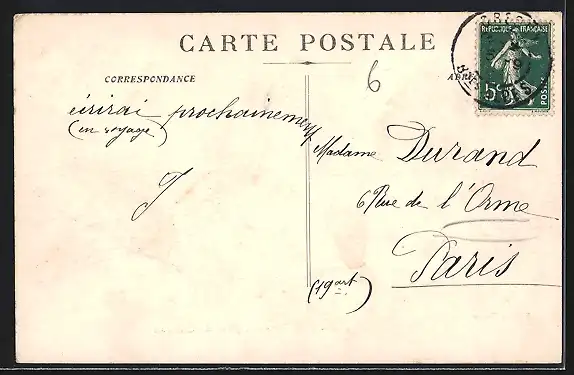 CARTE POSTALE
CORRESPONDANCE
6
écrirai prochainement
(en voyage)
J
REPUBLIQUE FRANÇAISE
5c
POSTES
Madame Durand
6 Rue de l'Orme
Paris
(19 art)